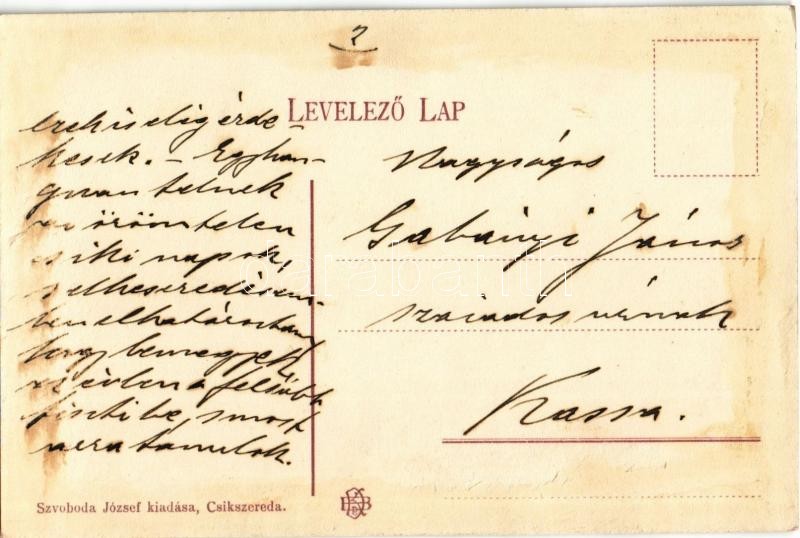 2
LEVELEZŐ LAP
ezek is elig érde-
kesek. – Egyhan-
guan telnek
az örömtelen
csiki napok,
s elkeseredésem-
ben elhatároztam
hogy bemegyek
az évben a felsőbb
tiszti be, s most
arra tanulok.
Nagyságos
Gabányi János
százados úrnak
Kassa.
Szvoboda József kiadása, Csikszereda.
darabanth